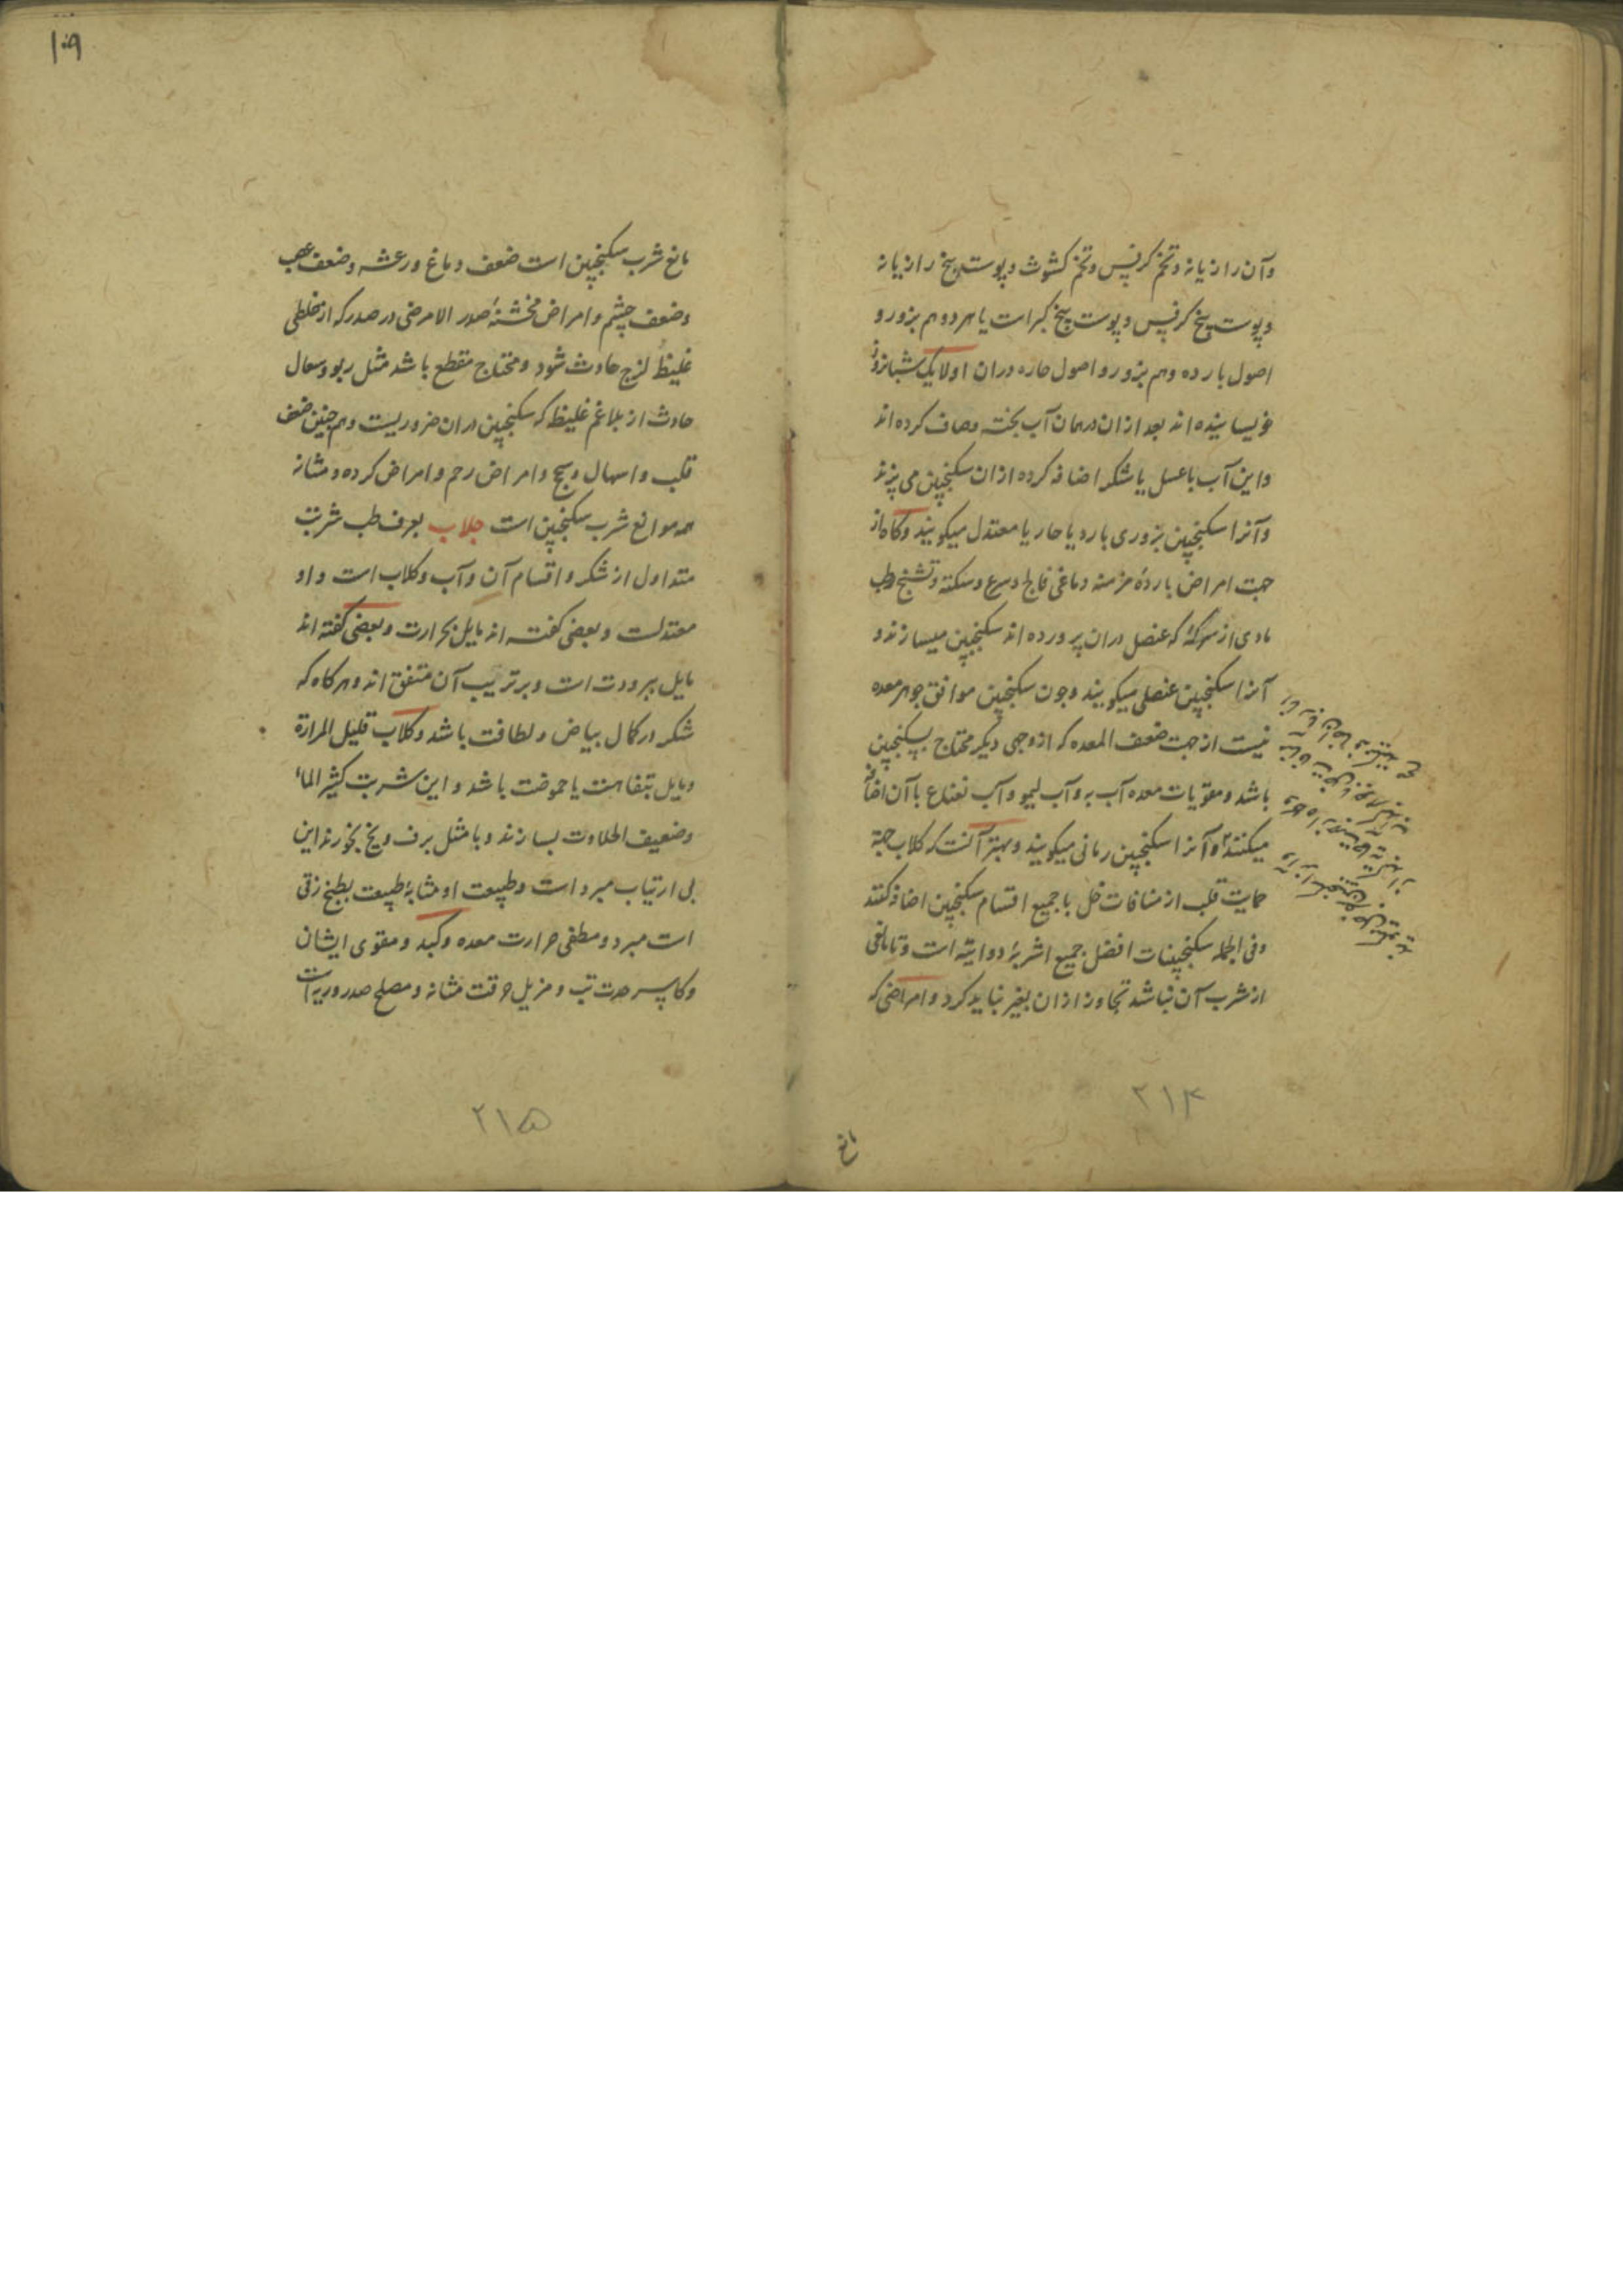 وآن رازیانه وتخم کرفس وتخم کشوث وپوست بیخ رازیانه
وپوست بیخ کرفس وپوست بیخ کبراست یا هردو هم بزور و
اصول بارده وهم بزور و اصول حاره دران اولا یک شبانروز
خویسانیده اند بعد ازان درهمان آب پخته وصاف کرده اند
واین آب با عسل یا شکر اضافه کرده ازان سکنجبین می پزند
وآنرا سکنجبین بزوری بارد یا حار یا معتدل میکویند وکاه از
جهت امراض بارده مزمنه دماغی فالج وصرع وسکته وتشنج رطب
مادی از سرکهٔ که عنصل دران پرورده اند سکنجبین میسازند و
آنرا سکنجبین عنصلی میکویند وچون سکنجبین موافق جوهر معده
نیست از جهت ضعف المعده که از وجهی دیکر محتاج بسکنجبین
باشد ومقویات معده آب به وآب لیمو وآب نعناع با آن اضافه
میکنند وآنرا سکنجبین رمانی میکویند وبهتر آنست که کلاب جهة
حمایت قلب از منافات خل با جمیع اقسام سکنجبین اضافه کنند
وفی الجمله سکنجبینات افضل جمیع اشربهٔ دوائیه است وتا مانعی
از شرب آن نباشد تجاوز ازان بغیر نباید کرد وامراضی که
۲۱۴
مانع
۱۰۹
مانع شرب سکنجبین است ضعف دماغ ورعشه وضعف عصب
وضعف چشم وامراض مخشنهٔ صدر الا مرضی در صدر که از خلطی
غلیظ لزج حادث شود ومحتاج مقطع باشد مثل ربو وسعال
حادث از بلاغم غلیظ که سکنجبین دران ضروریست وهم چنین ضعف
قلب واسهال وسحج وامراض رحم وامراض کرده ومثانه
همه موانع شرب سکنجبین است جلاب بعرف طب شربت
متداول از شکر واقسام آن وآب وکلاب است واو
معتدلست وبعضی کفته اند مایل بحرارت وبعضی کفته اند
مایل ببرودت است وبر ترتیب آن متفق اند وهرکاه که
شکر در کمال بیاض ولطافت باشد وکلاب قلیل المرارة
ومایل بتفاهت یا حموضت باشد واین شربت کثیر الماء
وضعیف الحلاوت بسازند وبا مثل برف ویخ بخورند این
بی ارتیاب مبرد است وطبیعت او مشابهٔ طبیعت بطیخ زقی
است مبرد ومطفی حرارت معده وکبد ومقوی ایشان
وکاسر حدت تب ومزیل حرقت مثانه ومصلح صدر وریه است
۲۱۵